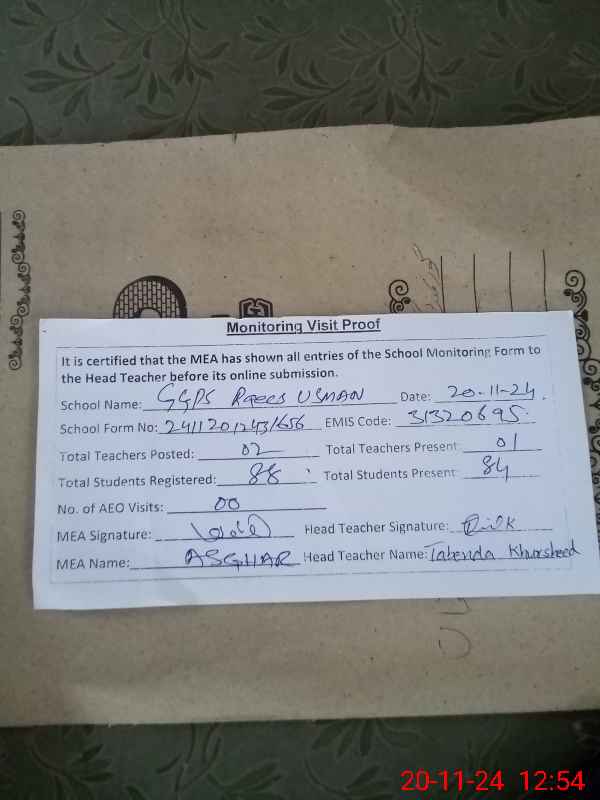 Monitoring Visit Proof
It is certified that the MEA has shown all entries of the School Monitoring Form to
the Head Teacher before its online submission.
School Name: GGPS Raees USMAN Date: 20-11-24.
School Form No: 24112012431656 EMIS Code: 31320695
Total Teachers Posted: 02 Total Teachers Present: 01
Total Students Registered: 88 Total Students Present: 84
No. of AEO Visits: 00
MEA Signature: Head Teacher Signature:
MEA Name: ASGHAR Head Teacher Name: Khursheed
20-11-24 12:54